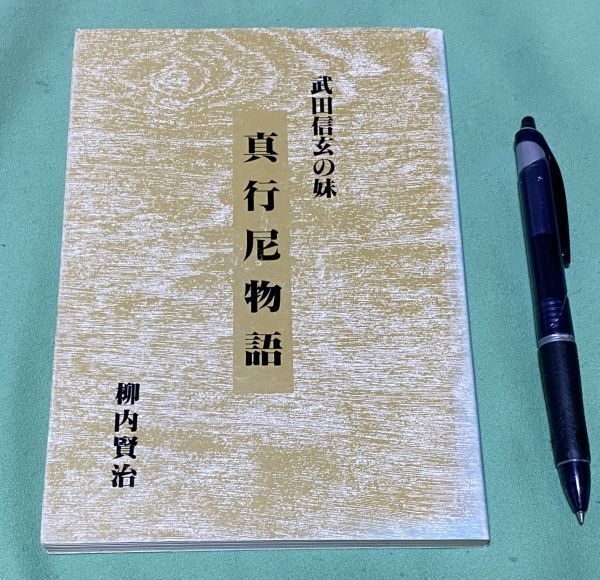 武田信玄の妹
真行尼物語
柳内賢治